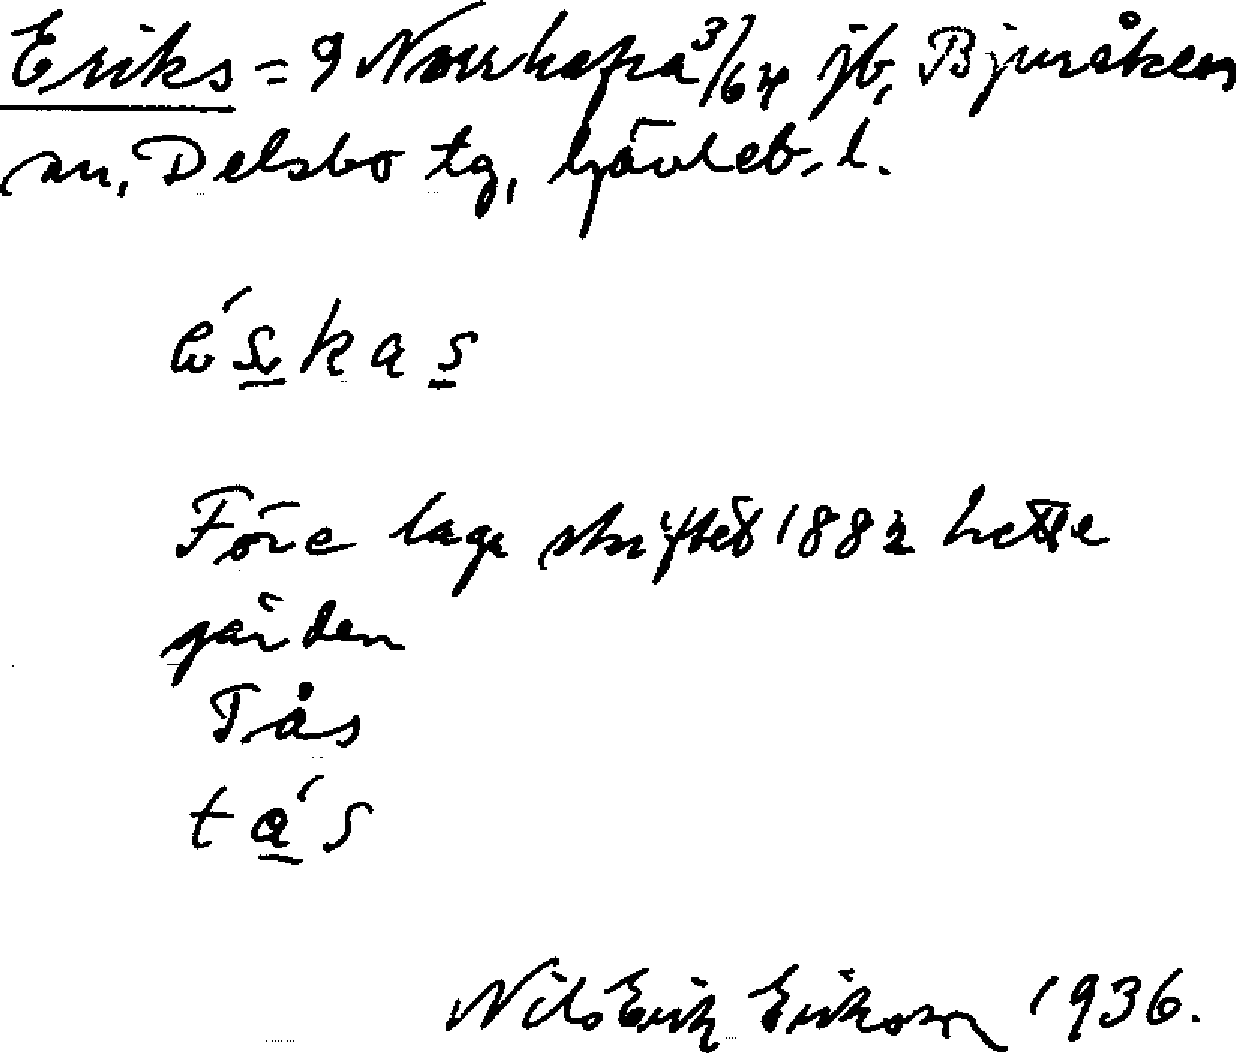 Eriks = 9 Norrhavra 3/64 jb, Bjuråkers
sn, Delsbo tg, Gävleb. l.
éskas
Före laga skiftet 1882 hette
gården
Tås
tás
Nils Erik Erikson 1936.